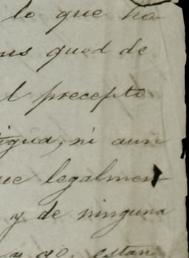 lo que ha
qued de
l precepto
igua, ni aun
ue legalmen
y de ninguna
estan